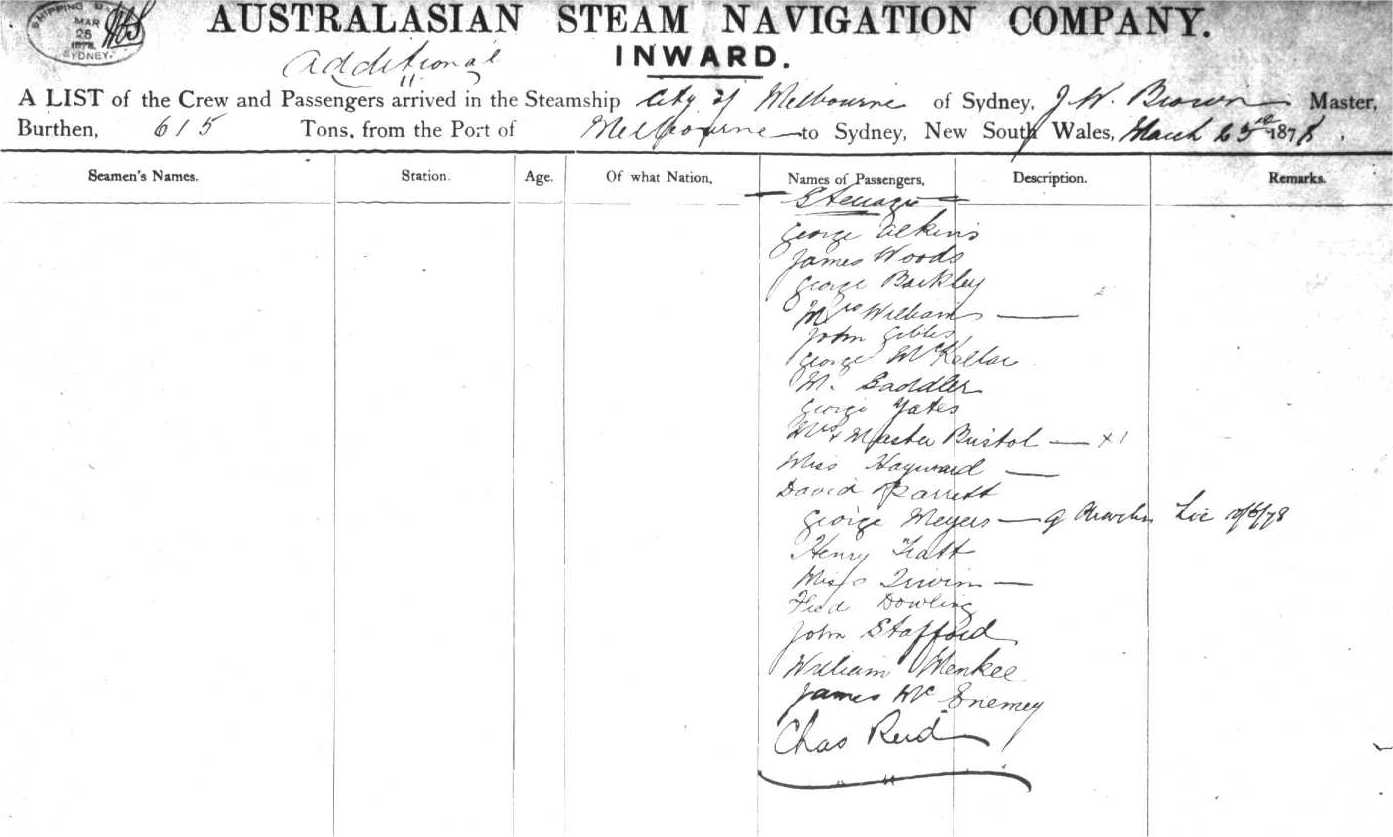 SHIPPING
MAR
25
1878
SYDNEY.
AUSTRALASIAN STEAM NAVIGATION COMPANY.
INWARD.
Additional
A LIST of the Crew and Passengers arrived in the Steamship City of Melbourne of Sydney, J. W. Brown Master,
Burthen, 615 Tons, from the Port of Melbourne to Sydney, New South Wales, March 23rd 1878.
Seamen's Names. Station. Age. Of what Nation. Names of Passengers, Description. Remarks.
Steerage
George Alkins
James Woods
George Barkley
Mrs Williams
John Gibbs
George McKellar
M. Saddler
George Yates
Mrs & Master Bristol — x1
Miss Hayward —
David Parrett
George Meyers — Lic
Henry Tratt
Miss Irwin —
Fred Dowling
John Stafford
William Menkee
James Mc Enemey
Chas Reid